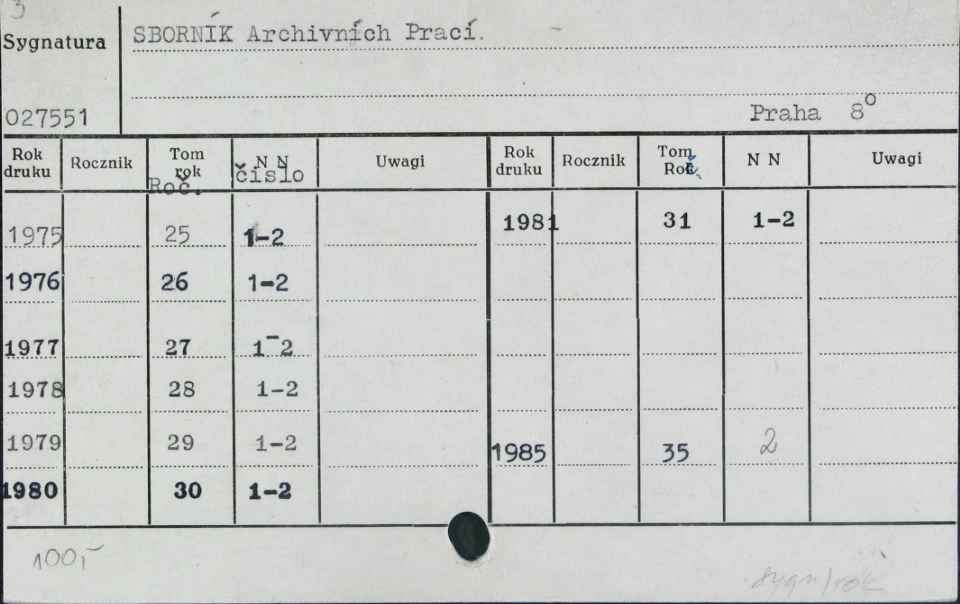 3
Sygnatura
SBORNÍK Archivních Prací.
027551
Praha 8º
Rok druku Rocznik Tom rok Roč. N N číslo Uwagi Rok druku Rocznik Tom Rok N N Uwagi
1975 25 1-2 1981 31 1-2
1976 26 1-2
1977 27 1-2
1978 28 1-2
1979 29 1-2 1985 35 2
1980 30 1-2
100,-
sygn/rok